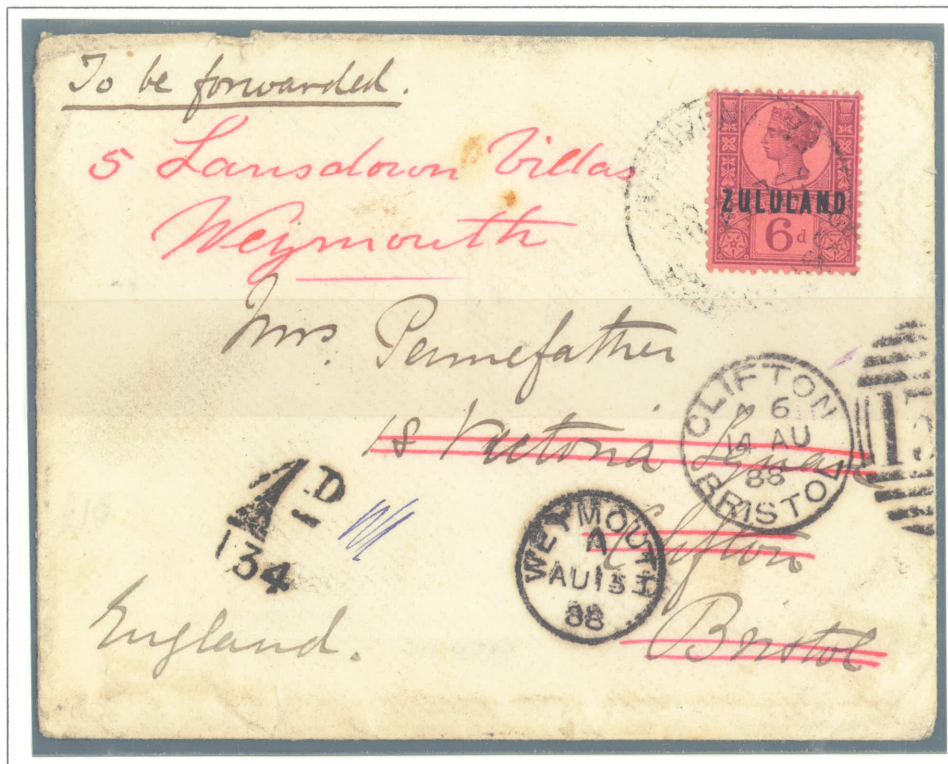 To be forwarded.
5 Lansdown Villas
Weymouth
ZULULAND
6d
Mrs. Pennefather
18 Victoria Square
Clifton
Bristol
England.
CLIFTON
6
14 AU
88
BRISTOL
WEYMOUTH
A
AU 15
88
1D
134